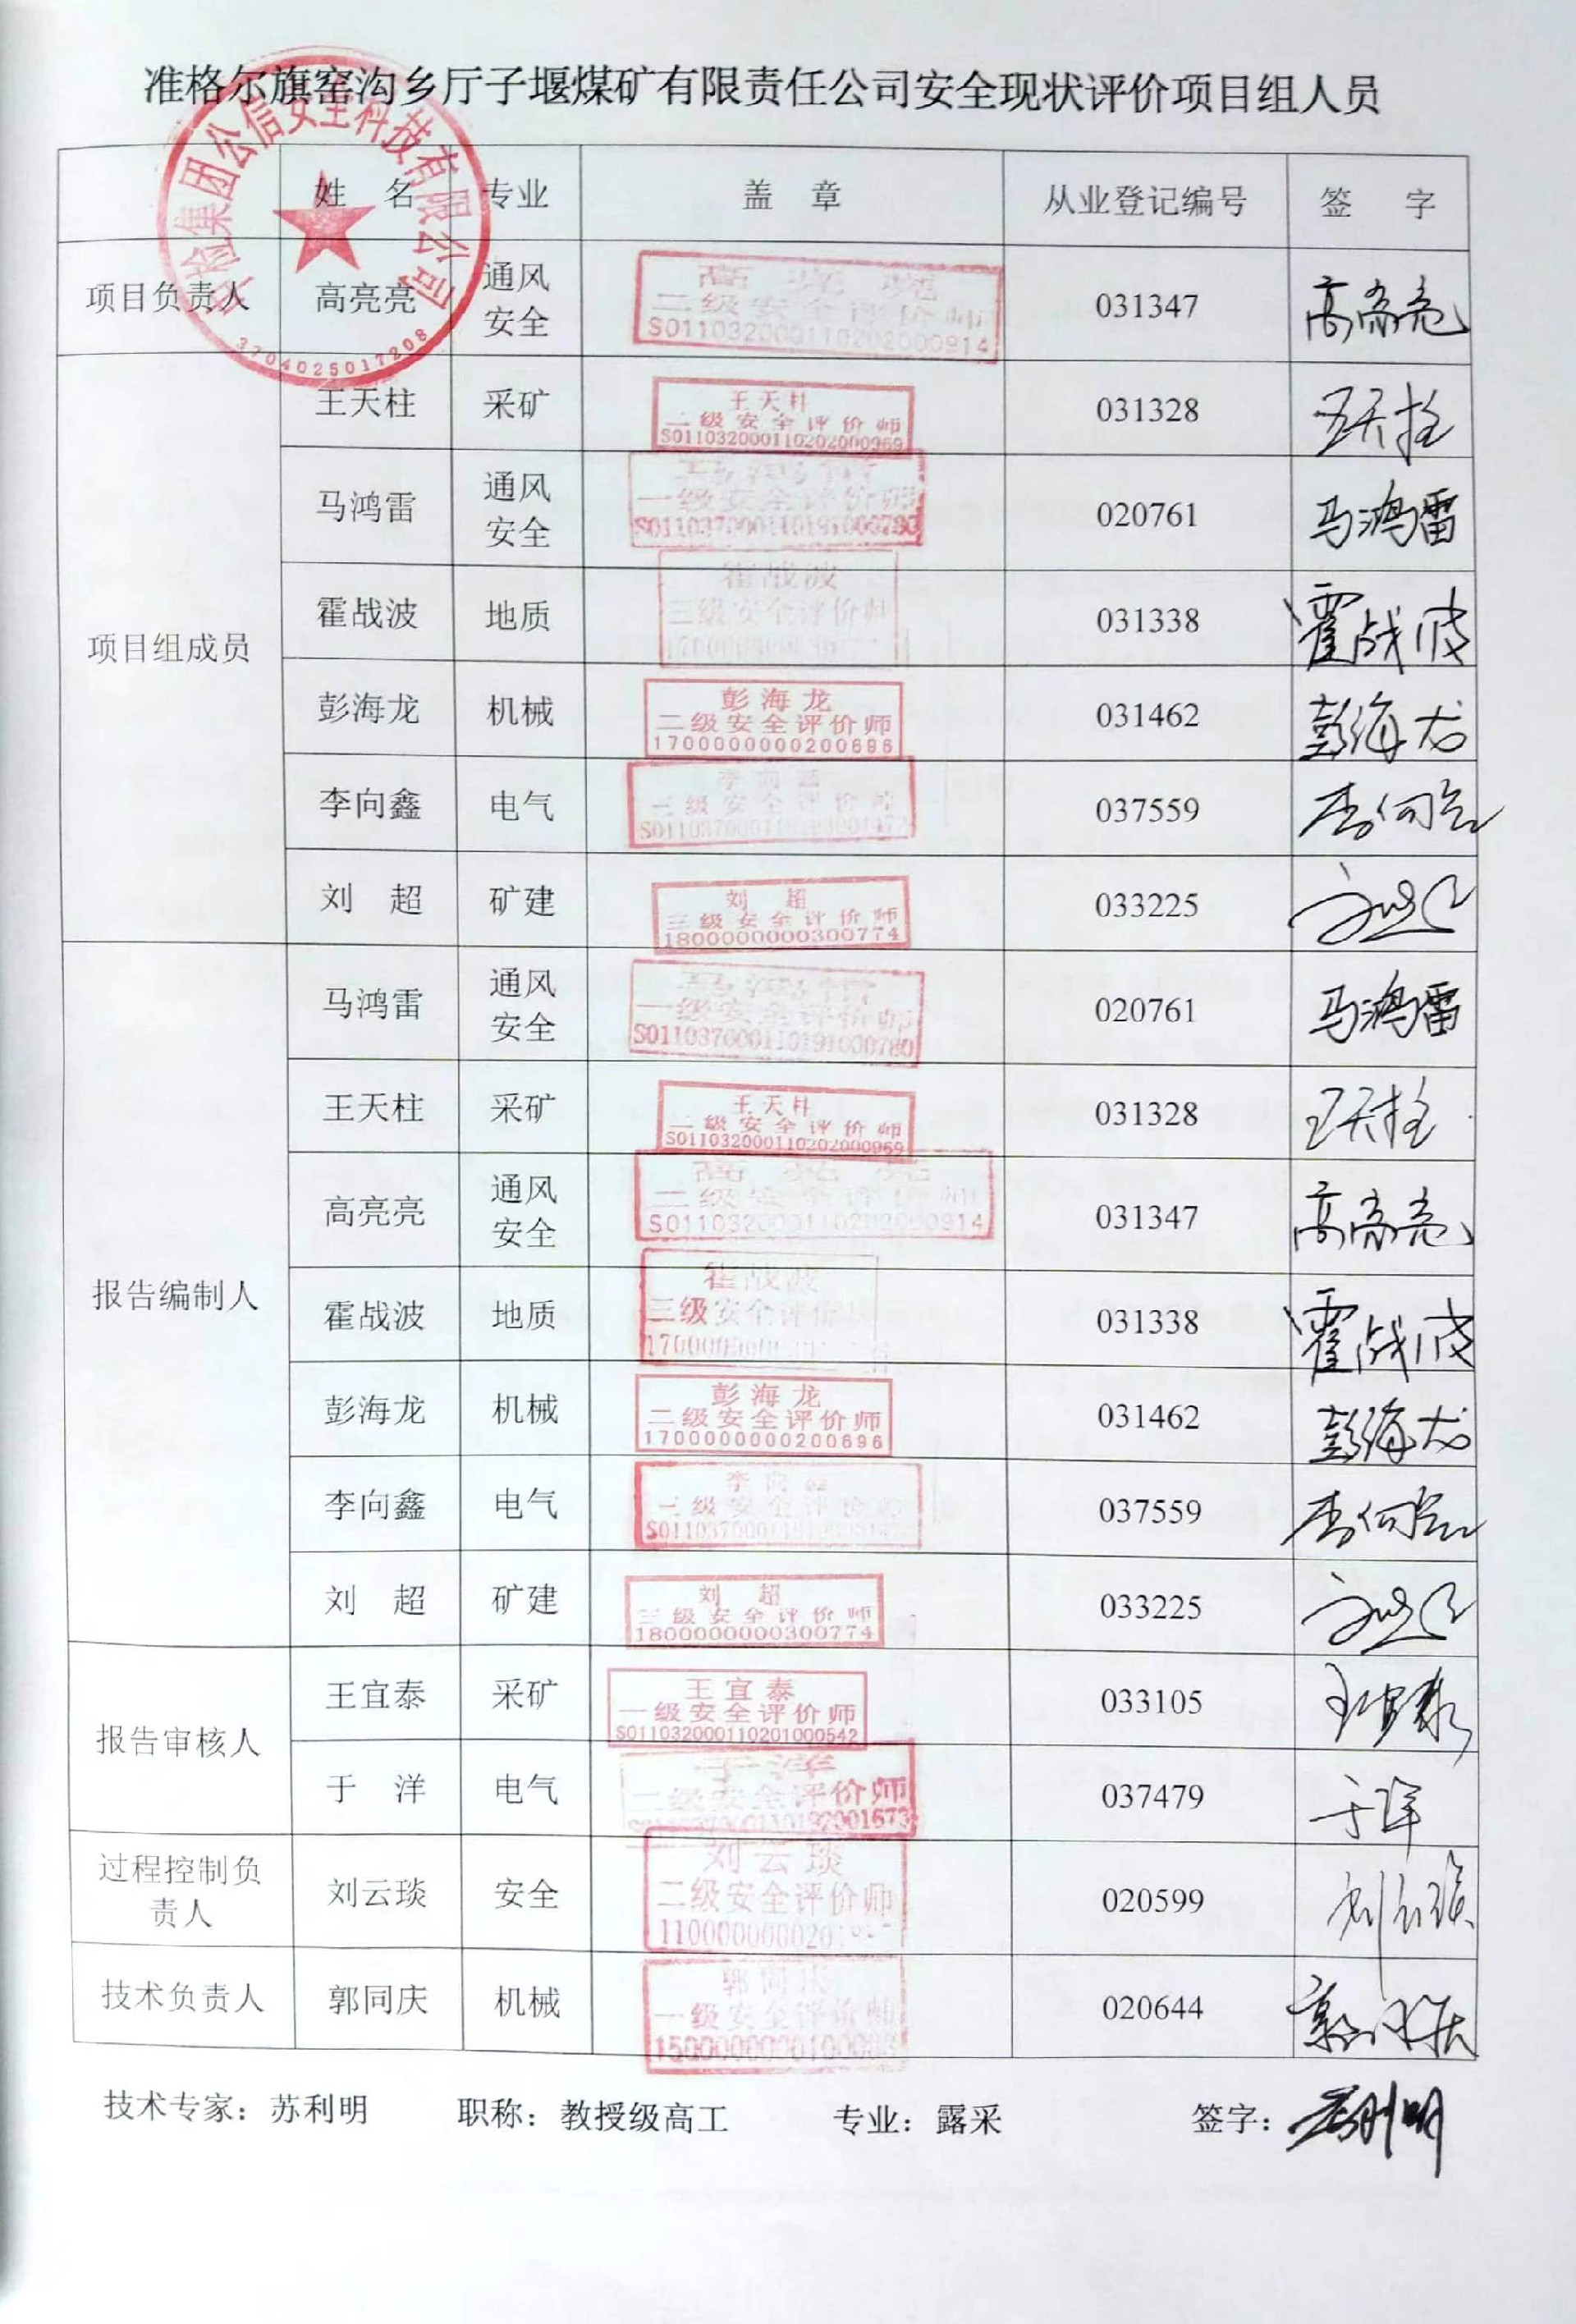 准格尔旗窑沟乡厅子堰煤矿有限责任公司安全现状评价项目组人员
检集团公信安全科技有限公司
3704025017208
姓 名 专业 盖 章 从业登记编号 签 字
项目负责人 高亮亮 通风安全 二级安全评价师 S011032000110202000914 031347 高亮亮
项目组成员
王天柱 采矿 王天柱 二级安全评价师 S011032000110202000969 031328 王天柱
马鸿雷 通风安全 一级安全评价师 S011037000110191000780 020761 马鸿雷
霍战波 地质 霍战波 三级安全评价师 031338 霍战波
彭海龙 机械 彭海龙 二级安全评价师 1700000000200696 031462 彭海龙
李向鑫 电气 李向鑫 级安全评价师 037559 李向鑫
刘 超 矿建 刘 超 三级安全评价师 1800000000300774 033225 刘超
报告编制人
马鸿雷 通风安全 一级安全评价师 S011037000110191000780 020761 马鸿雷
王天柱 采矿 王天柱 二级安全评价师 S011032000110202000969 031328 王天柱
高亮亮 通风安全 二级安全评价师 S011032000110202000914 031347 高亮亮
霍战波 地质 霍战波 三级安全评价师 031338 霍战波
彭海龙 机械 彭海龙 二级安全评价师 1700000000200696 031462 彭海龙
李向鑫 电气 李向鑫 级安全评价师 037559 李向鑫
刘 超 矿建 刘 超 三级安全评价师 1800000000300774 033225 刘超
报告审核人
王宜泰 采矿 王宜泰 一级安全评价师 S011032000110201000542 033105 王宜泰
于 洋 电气 于洋 安全评价师 037479 于洋
过程控制负责人 刘云琰 安全 刘云琰 二级安全评价师 020599 刘云琰
技术负责人 郭同庆 机械 郭同庆 一级安全评价师 020644 郭同庆
技术专家：苏利明 职称：教授级高工 专业：露采 签字：苏利明